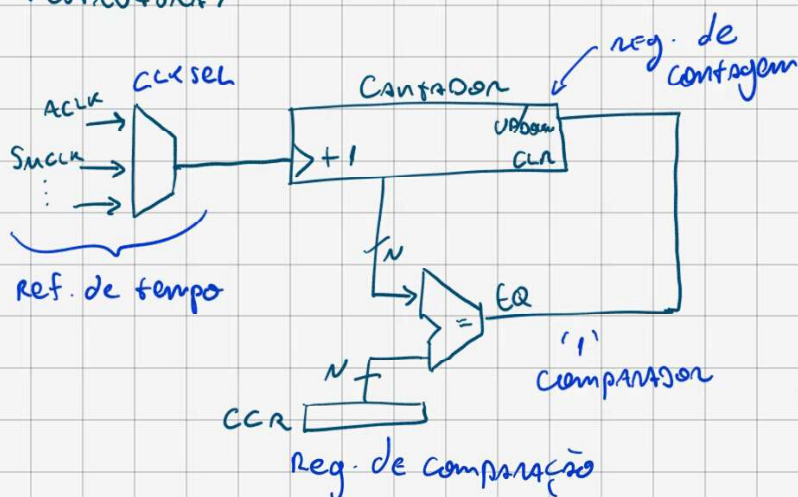 CLKSEL
ACLK
SMCLK
Ref. de tempo
CONTADOR
reg. de
contagem
UPDOWN
CLR
+1
N
EQ
=
'1'
COMPARADOR
N
CCR
Reg. de comparação